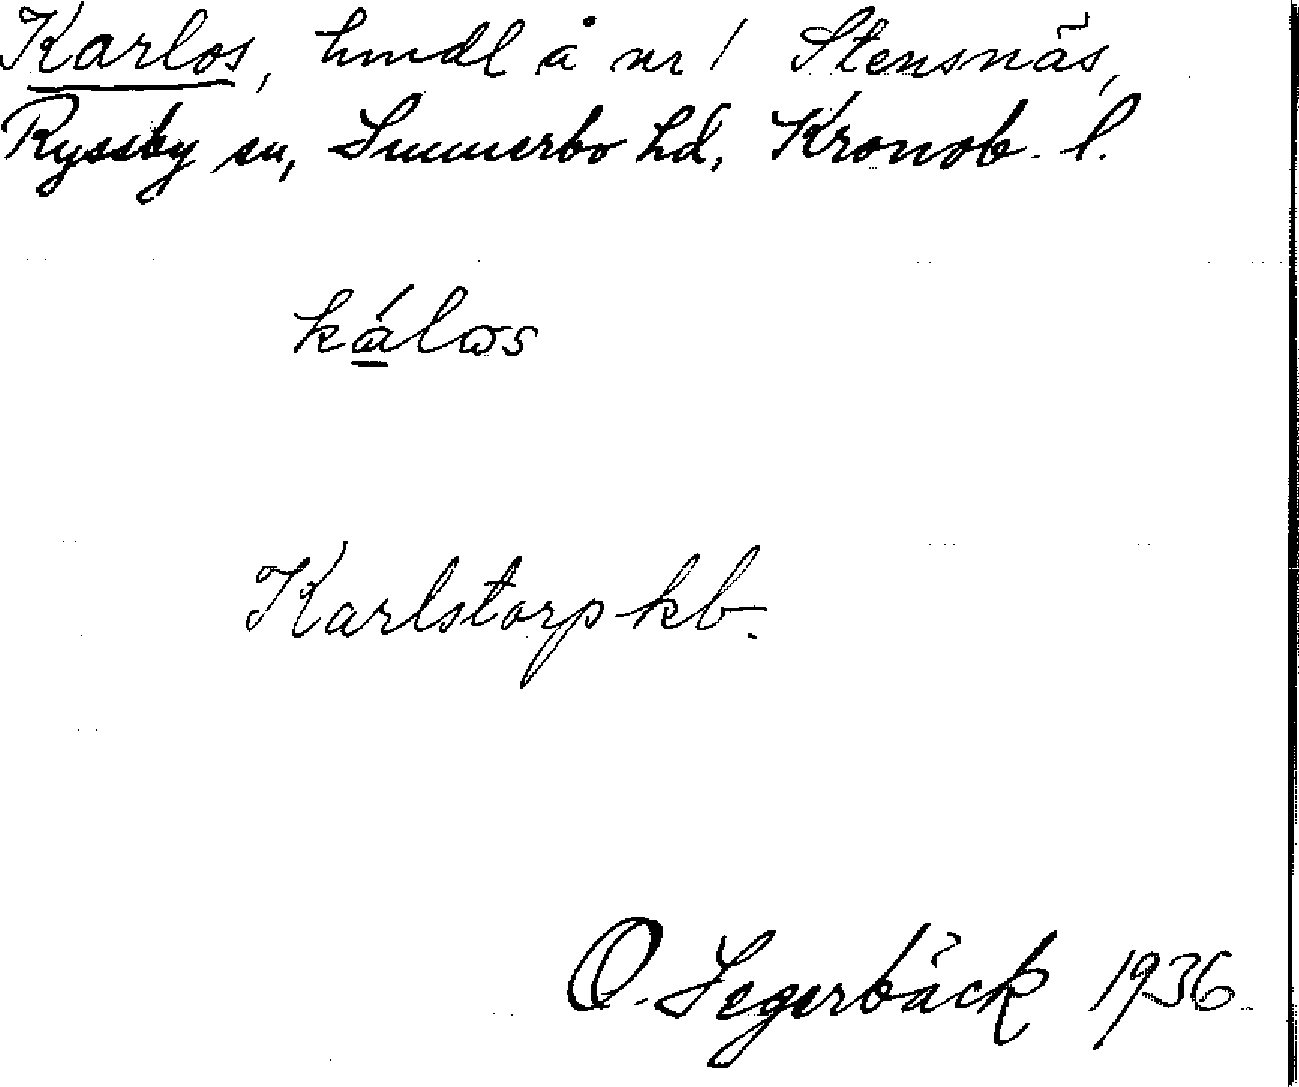 Karlos, hmdl å nr 1 Stensnäs,
Ryssby sn, Sunnerbo hd, Kronob. l.
kálos
Karlstorp kb.
O. Segerbäck 1936